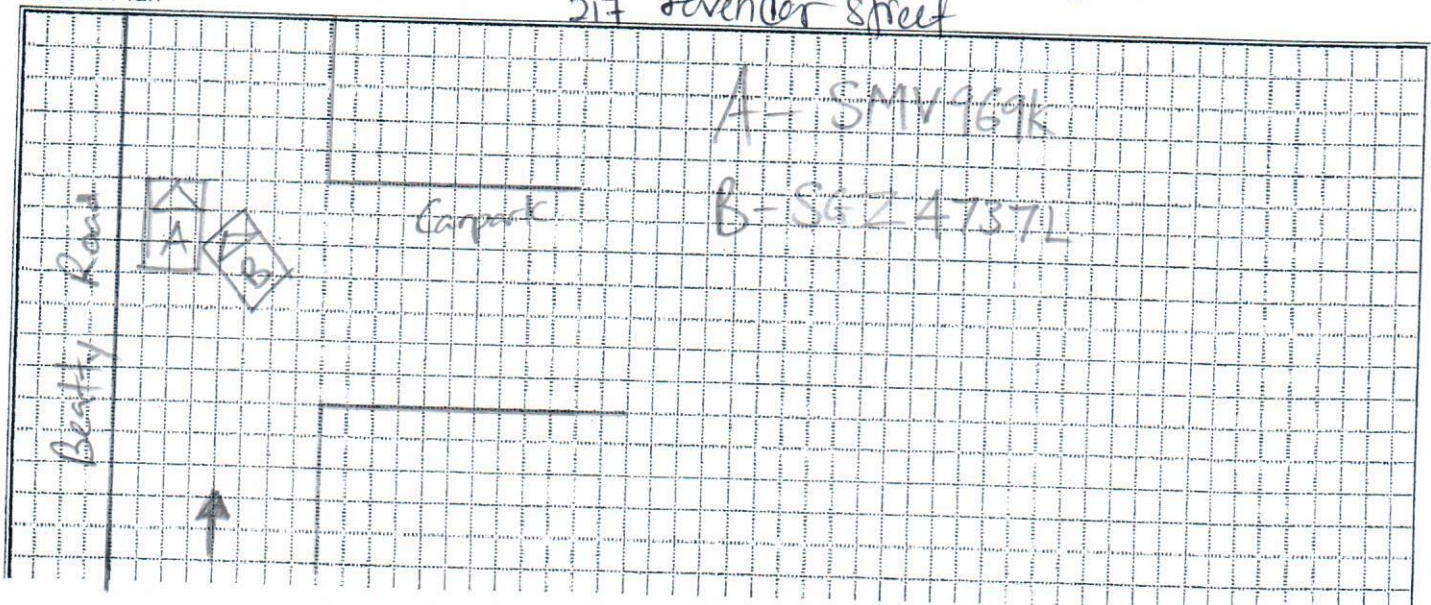 217 Lavender Street
A - SMV969K
B - SGZ4737L
Carpark
A
B
Beatty Road